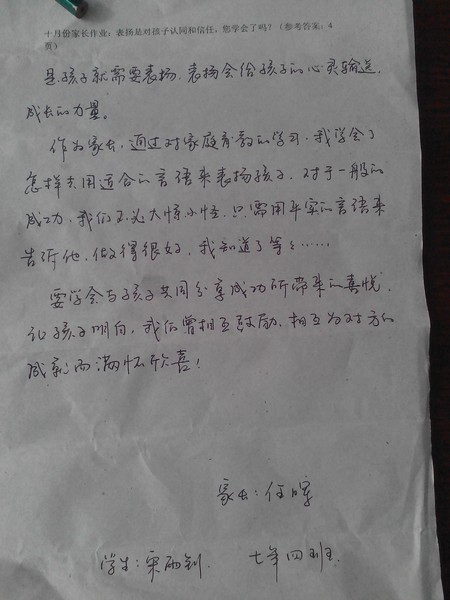 十月份家长作业：表扬是对孩子认同和信任，您学会了吗？（参考答案：4
页）
是孩子就需要表扬，表扬会给孩子的心灵输送
成长的力量。
作为家长，通过对家庭育教的学习，我学会了
怎样去用适合的言语来表扬孩子，对于一般的
成功，我们不必大惊小怪，只需用平实的言语来
告诉他，做得很好，我知道了等等……
要学会与孩子共同分享成功所带来的喜悦，
让孩子明白，我们曾相互鼓励，相互为对方的
成就而满怀欣喜！
家长：任晖
学生：宋雨钊 七年四班